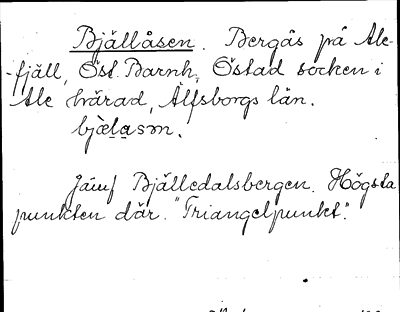 Bjällåsen. Bergås på Ale-
-fjäll, Öst. Barnh., Östad socken i
Ale härad, Älfsborgs län.
bjælasm.
Jämf Bjälledalsbergen. Högsta
punkten där. "Triangelpunkt".